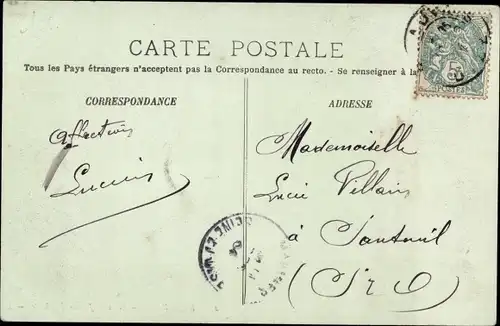 CARTE POSTALE
Tous les Pays étrangers n'acceptent pas la Correspondance au recto. - Se renseigner à la
CORRESPONDANCE
ADRESSE
Mademoiselle
Lucie Villain
à Santeuil
(S et O)
POSTES
SEINE-ET-OISE